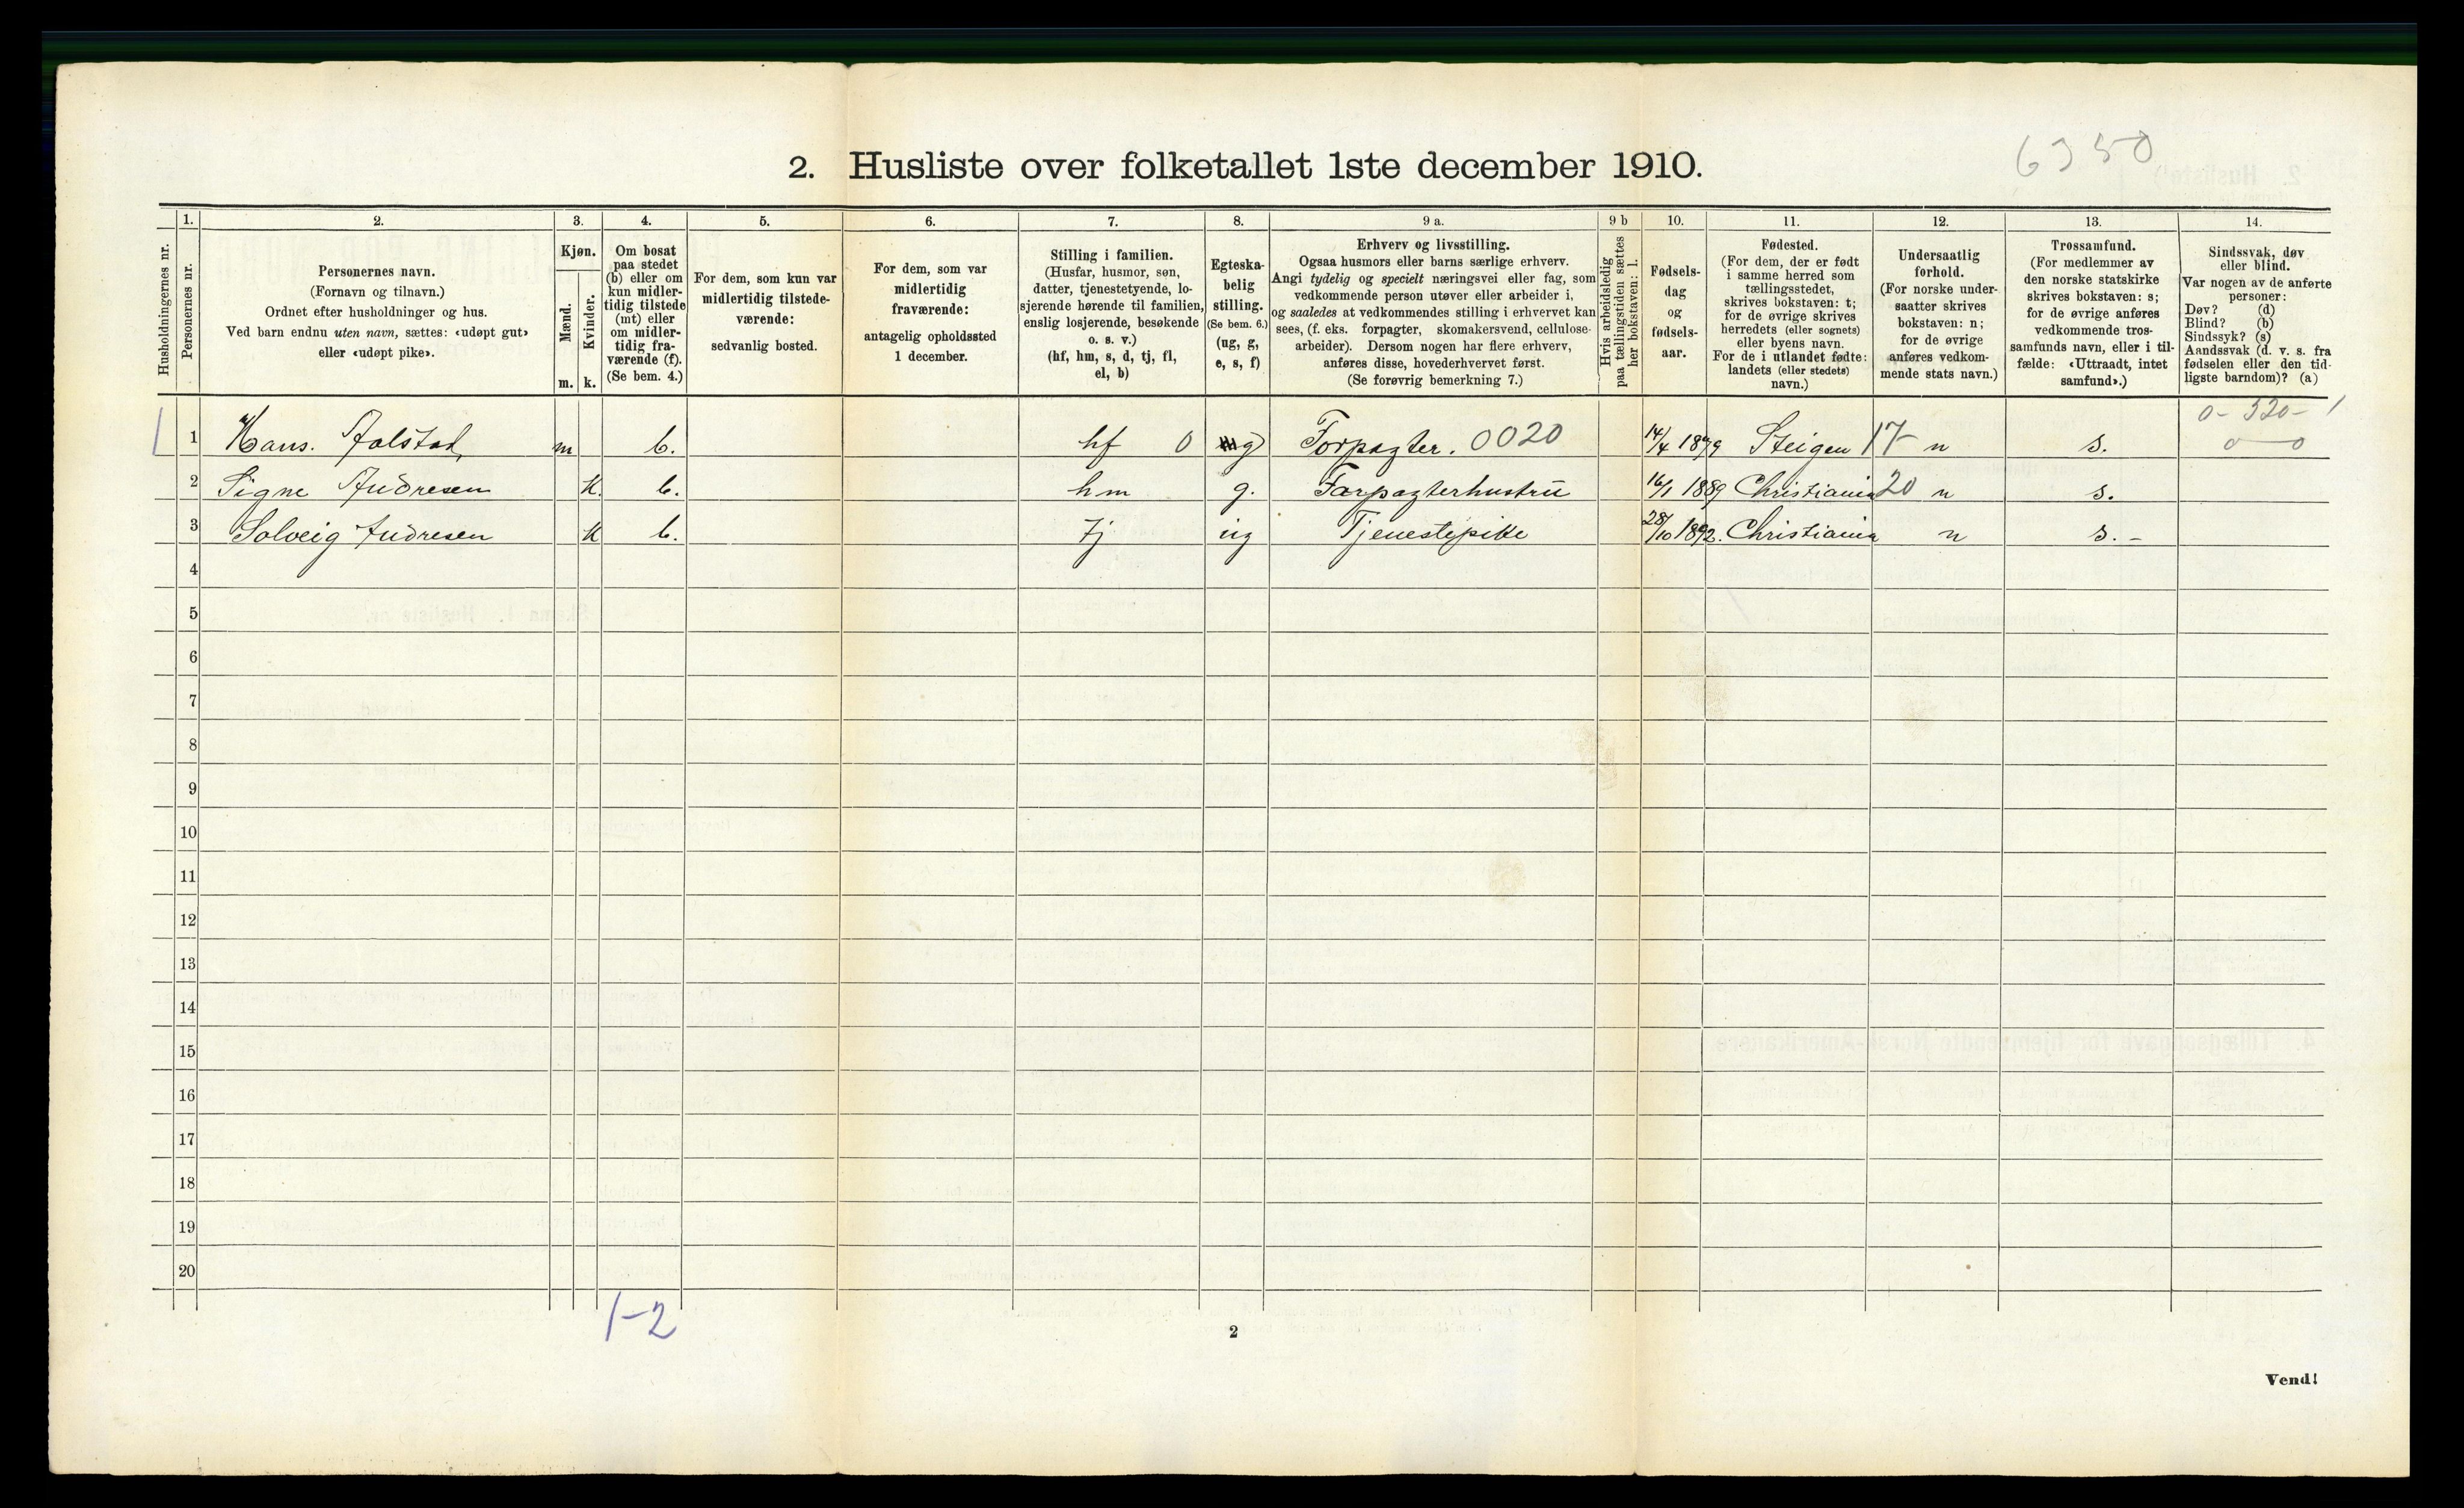 6350
2. Husliste over folketallet 1ste december 1910.
Husholdningernes nr.
1.
Personernes nr.
2.
Personernes navn.
(Fornavn og tilnavn.)
Ordnet efter husholdninger og hus.
Ved barn endnu uten navn, sættes: «udøpt gut»
eller «udøpt pike».
3.
Kjøn.
Mænd.
m.
Kvinder.
k.
4.
Om bosat
paa stedet
(b) eller om
kun midler-
tidig tilstede
(mt) eller
om midler-
tidig fra-
værende (f).
(Se bem. 4.)
5.
For dem, som kun var
midlertidig tilstede-
værende:
sedvanlig bosted.
6.
For dem, som var
midlertidig
fraværende:
antagelig opholdssted
1 december.
7.
Stilling i familien.
(Husfar, husmor, søn,
datter, tjenestetyende, lo-
sjerende hørende til familien,
enslig losjerende, besøkende
o. s. v.)
(hf, hm, s, d, tj, fl,
el, b)
8.
Egteska-
belig
stilling.
(Se bem. 6.)
(ug, g,
e, s, f)
9 a.
Erhverv og livsstilling.
Ogsaa husmors eller barns særlige erhverv.
Angi tydelig og specielt næringsvei eller fag, som
vedkommende person utøver eller arbeider i,
og saaledes at vedkommendes stilling i erhvervet kan
sees, (f. eks. forpagter, skomakersvend, cellulose-
arbeider). Dersom nogen har flere erhverv,
anføres disse, hovederhvervet først.
(Se forøvrig bemerkning 7.)
9 b
Hvis arbeidsledig
paa tællingstiden sættes
her bokstaven: l.
10.
Fødsels-
dag
og
fødsels-
aar.
11.
Fødested.
(For dem, der er født
i samme herred som
tællingsstedet,
skrives bokstaven: t;
for de øvrige skrives
herredets (eller sognets)
eller byens navn.
For de i utlandet fødte:
landets (eller stedets)
navn.)
12.
Undersaatlig
forhold.
(For norske under-
saatter skrives
bokstaven: n;
for de øvrige
anføres vedkom-
mende stats navn.)
13.
Trossamfund.
(For medlemmer av
den norske statskirke
skrives bokstaven: s;
for de øvrige anføres
vedkommende tros-
samfunds navn, eller i til-
fælde: «Uttraadt, intet
samfund».)
14.
Sindssvak, døv
eller blind.
Var nogen av de anførte
personer:
Døv? (d)
Blind? (b)
Sindssyk? (s)
Aandssvak (d. v. s. fra
fødselen eller den tid-
ligste barndom)? (a)
0- 320- 1
1 1 Hans. Aalstad, m b. hf 0 g Forpagter. 0020 14/4 1879 Steigen 17- n s. 0 — 0
2 Signe Andresen K. b. hm g. Forpagterhustru 16/1 1889 Christiania 20 n s.
3 Solveig Andresen K b. tj ug Tjenestepike 28/10 1892. Christiania n s. -
4
5
6
7
8
9
10
11
12
13
14
15
16
17
18
19
20
1-2
2
Vend!